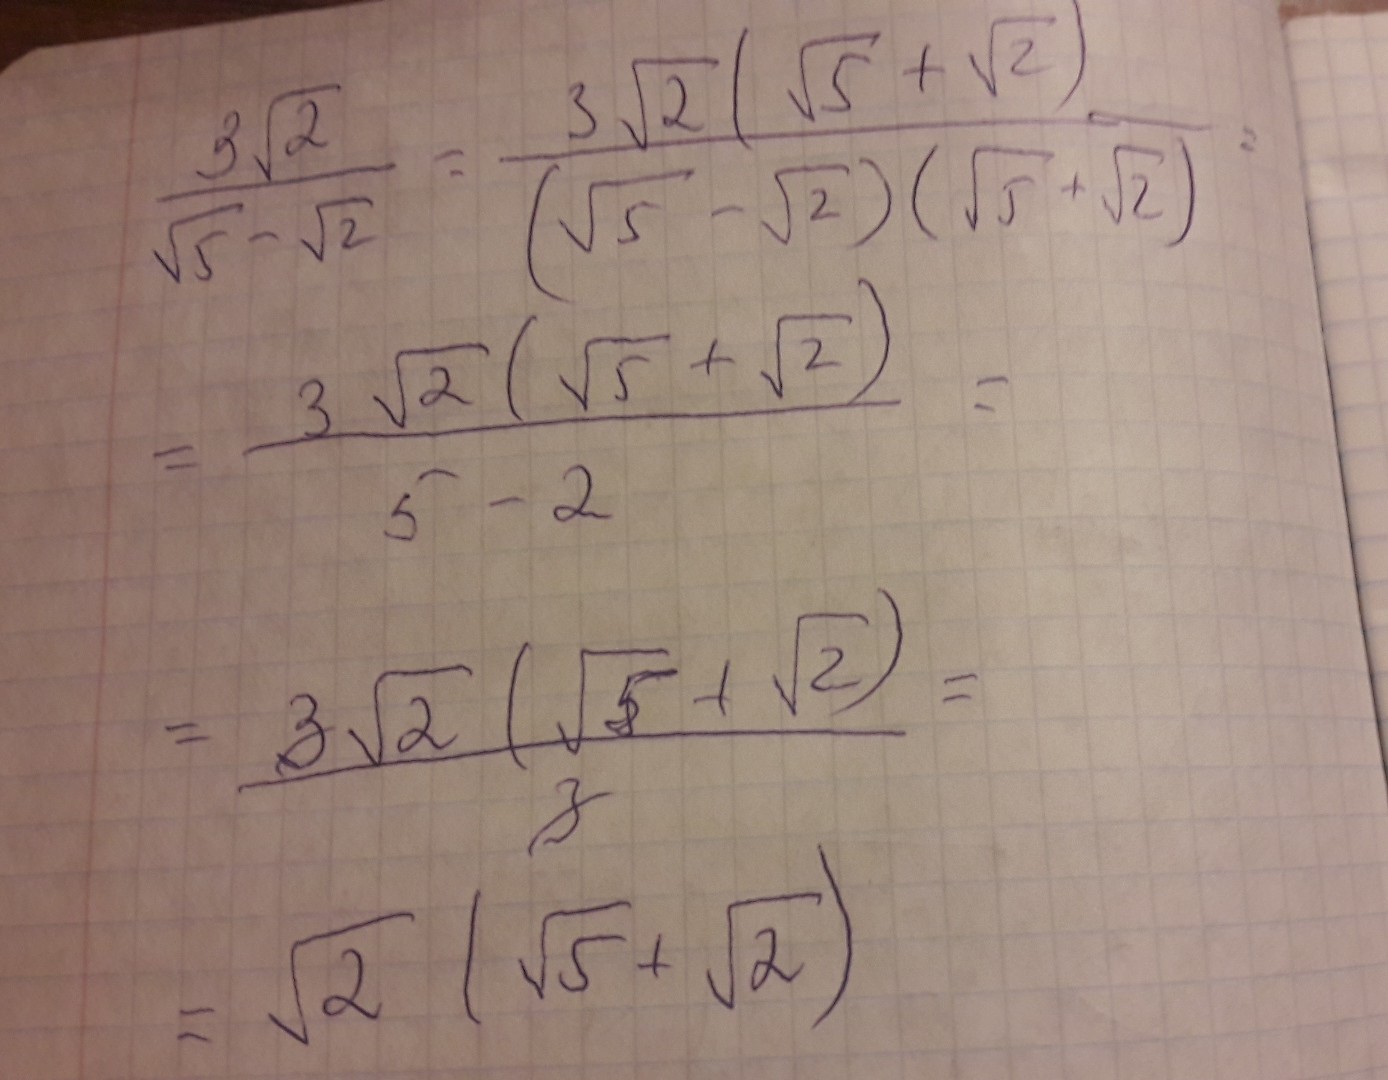 3√2/(√5 - √2) = 3√2(√5 + √2)/((√5 - √2)(√5 + √2)) =
= 3√2(√5 + √2)/(5 - 2) =
= 3√2(√5 + √2)/3 =
= √2(√5 + √2)